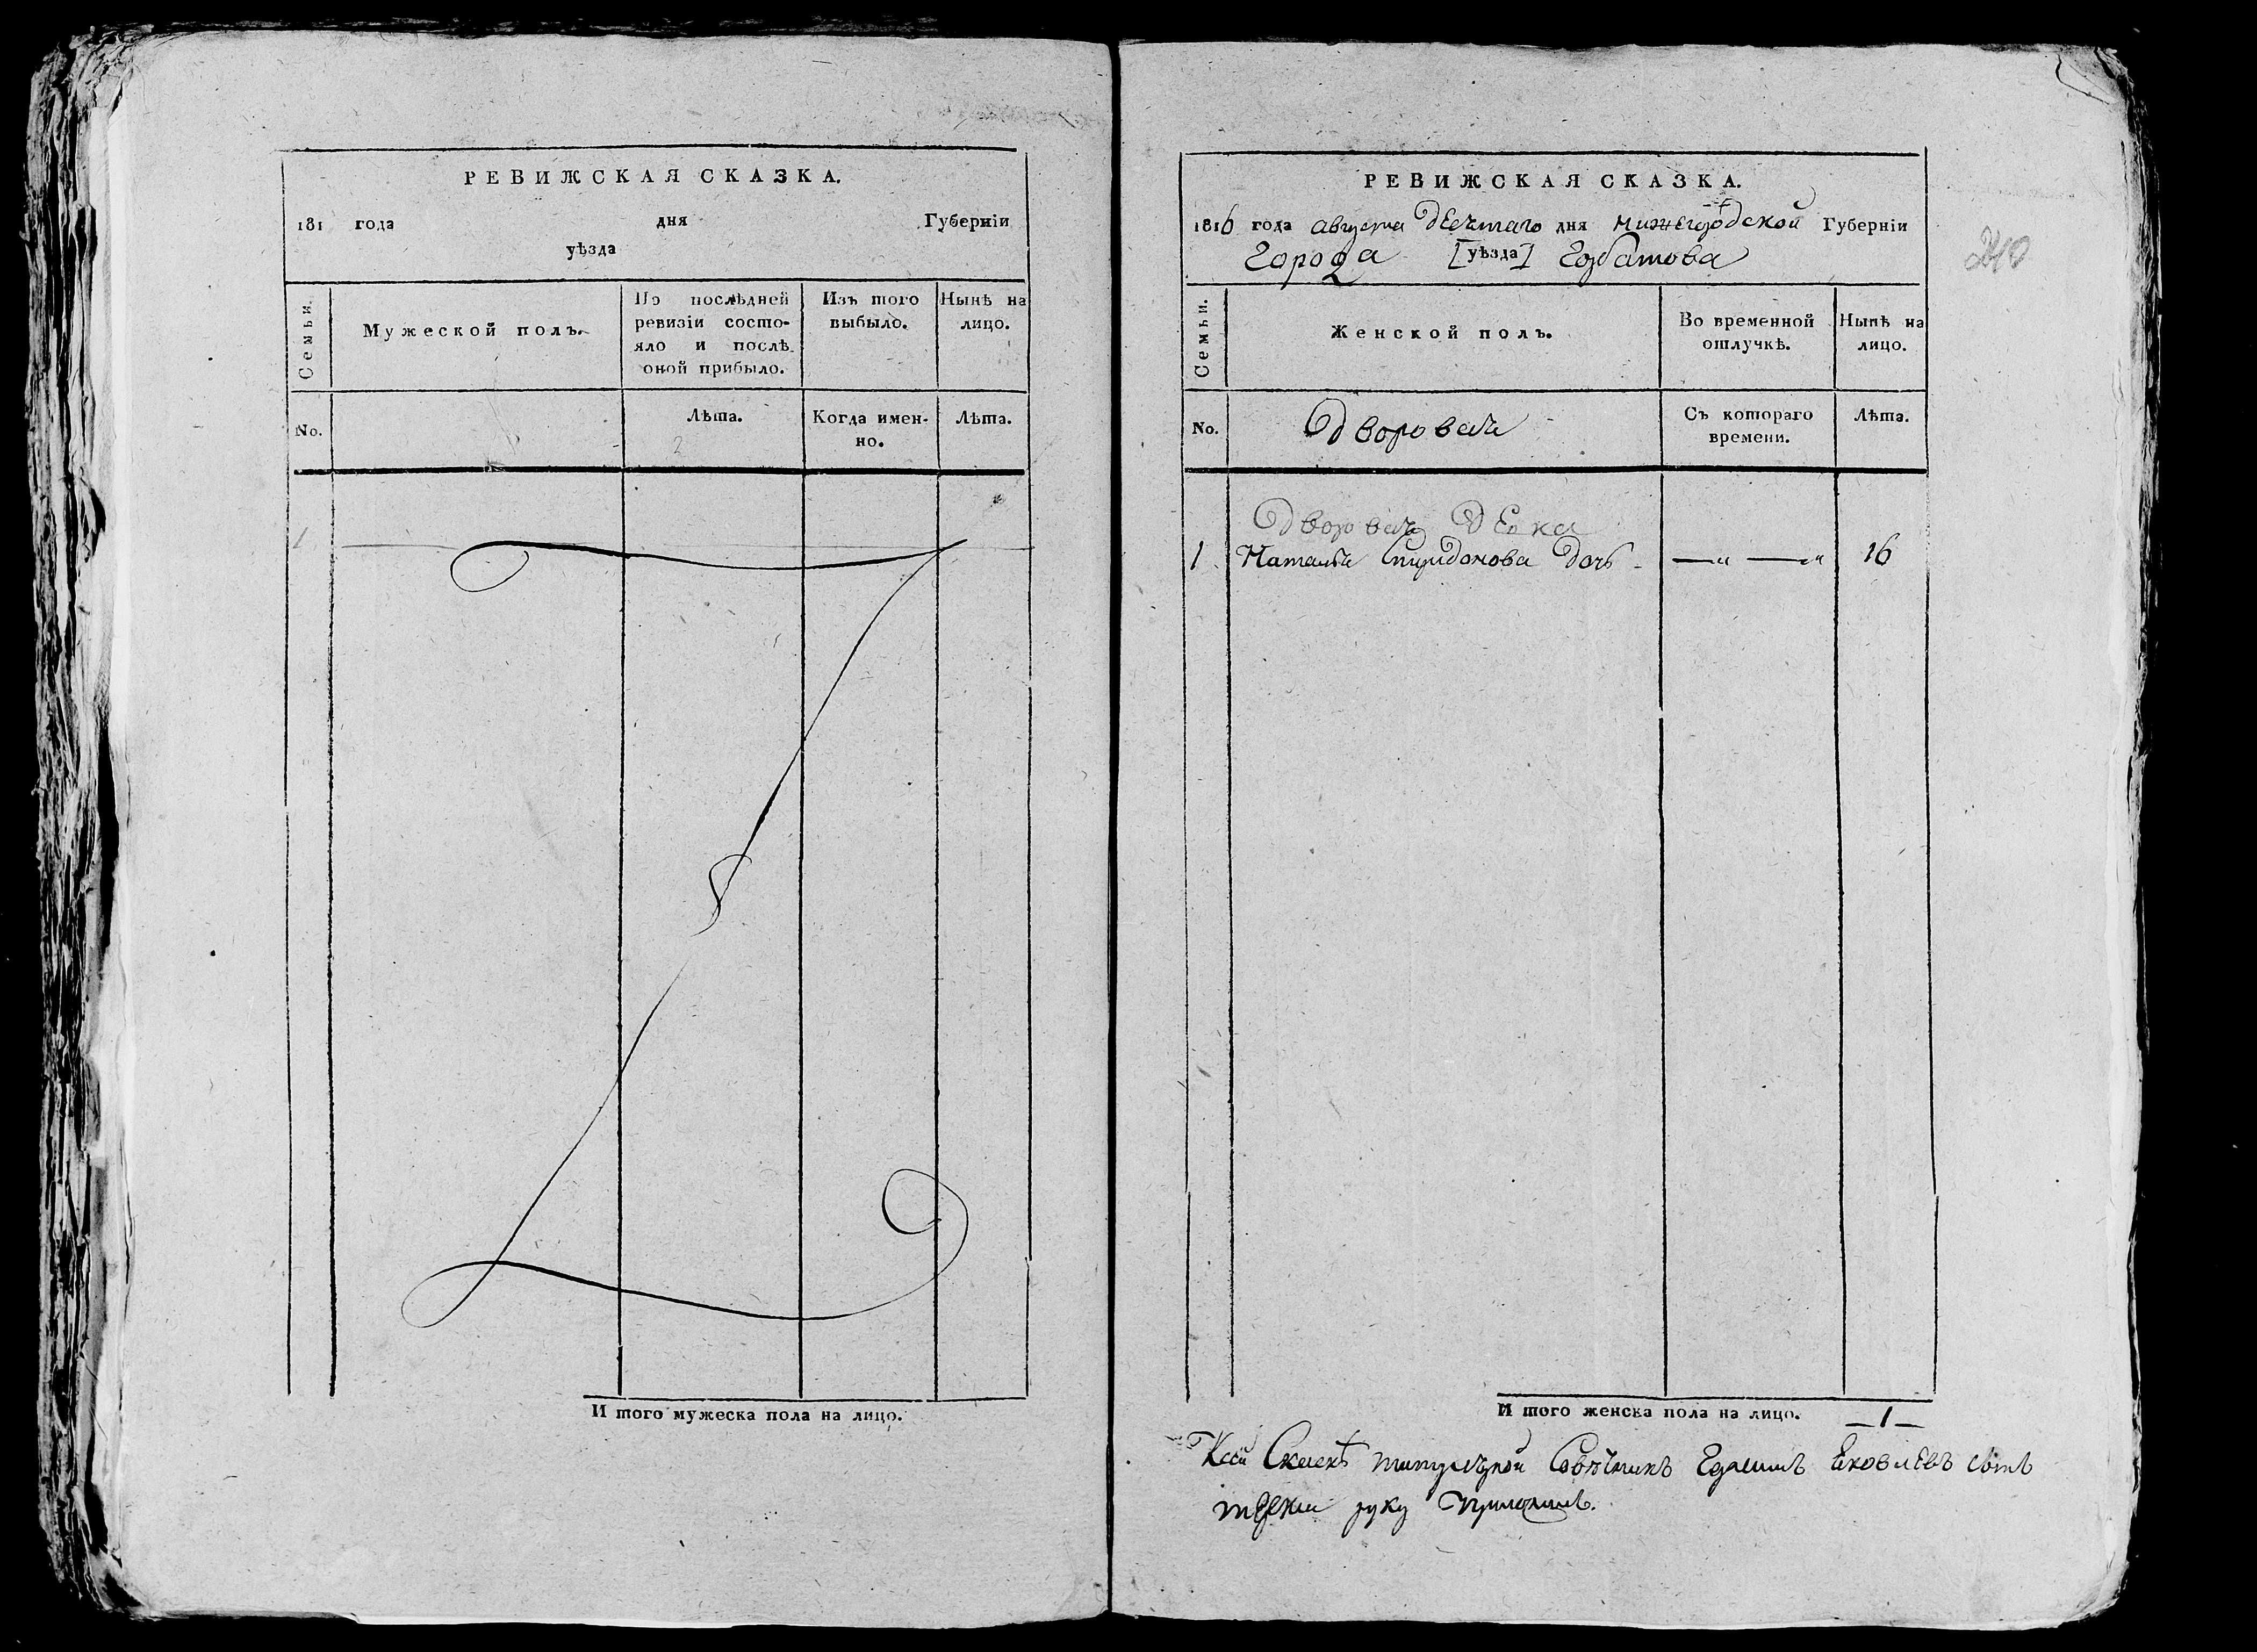 РЕВИЖСКАЯ СКАЗКА.
181 года дня Губерніи
уѣзда
Семьи.
Мужеской полъ.
По послѣдней ревизіи состо-
яло и послѣ
оной прибыло.
Изъ того
выбыло.
Нынѣ на
лицо.
No.
Лѣта.
Когда имен-
но.
Лѣта.
1
И того мужеска пола на лицо.
РЕВИЖСКАЯ СКАЗКА.
1816 года августа десятаго дня Нижегородской Губерніи
Города [уѣзда] Горбатова
240
Семьи.
Женской полъ.
Во временной
отлучкѣ.
Нынѣ на
лицо.
No.
Дворовая
Съ котораго
времени.
Лѣта.
Дворовая девка
1. Наталья Спиридонова дочь — „ — „ 16
И того женска пола на лицо. — 1 —
К сей Сказкѣ титулярной Совѣтникъ Яковлевъ
руку приложилъ.